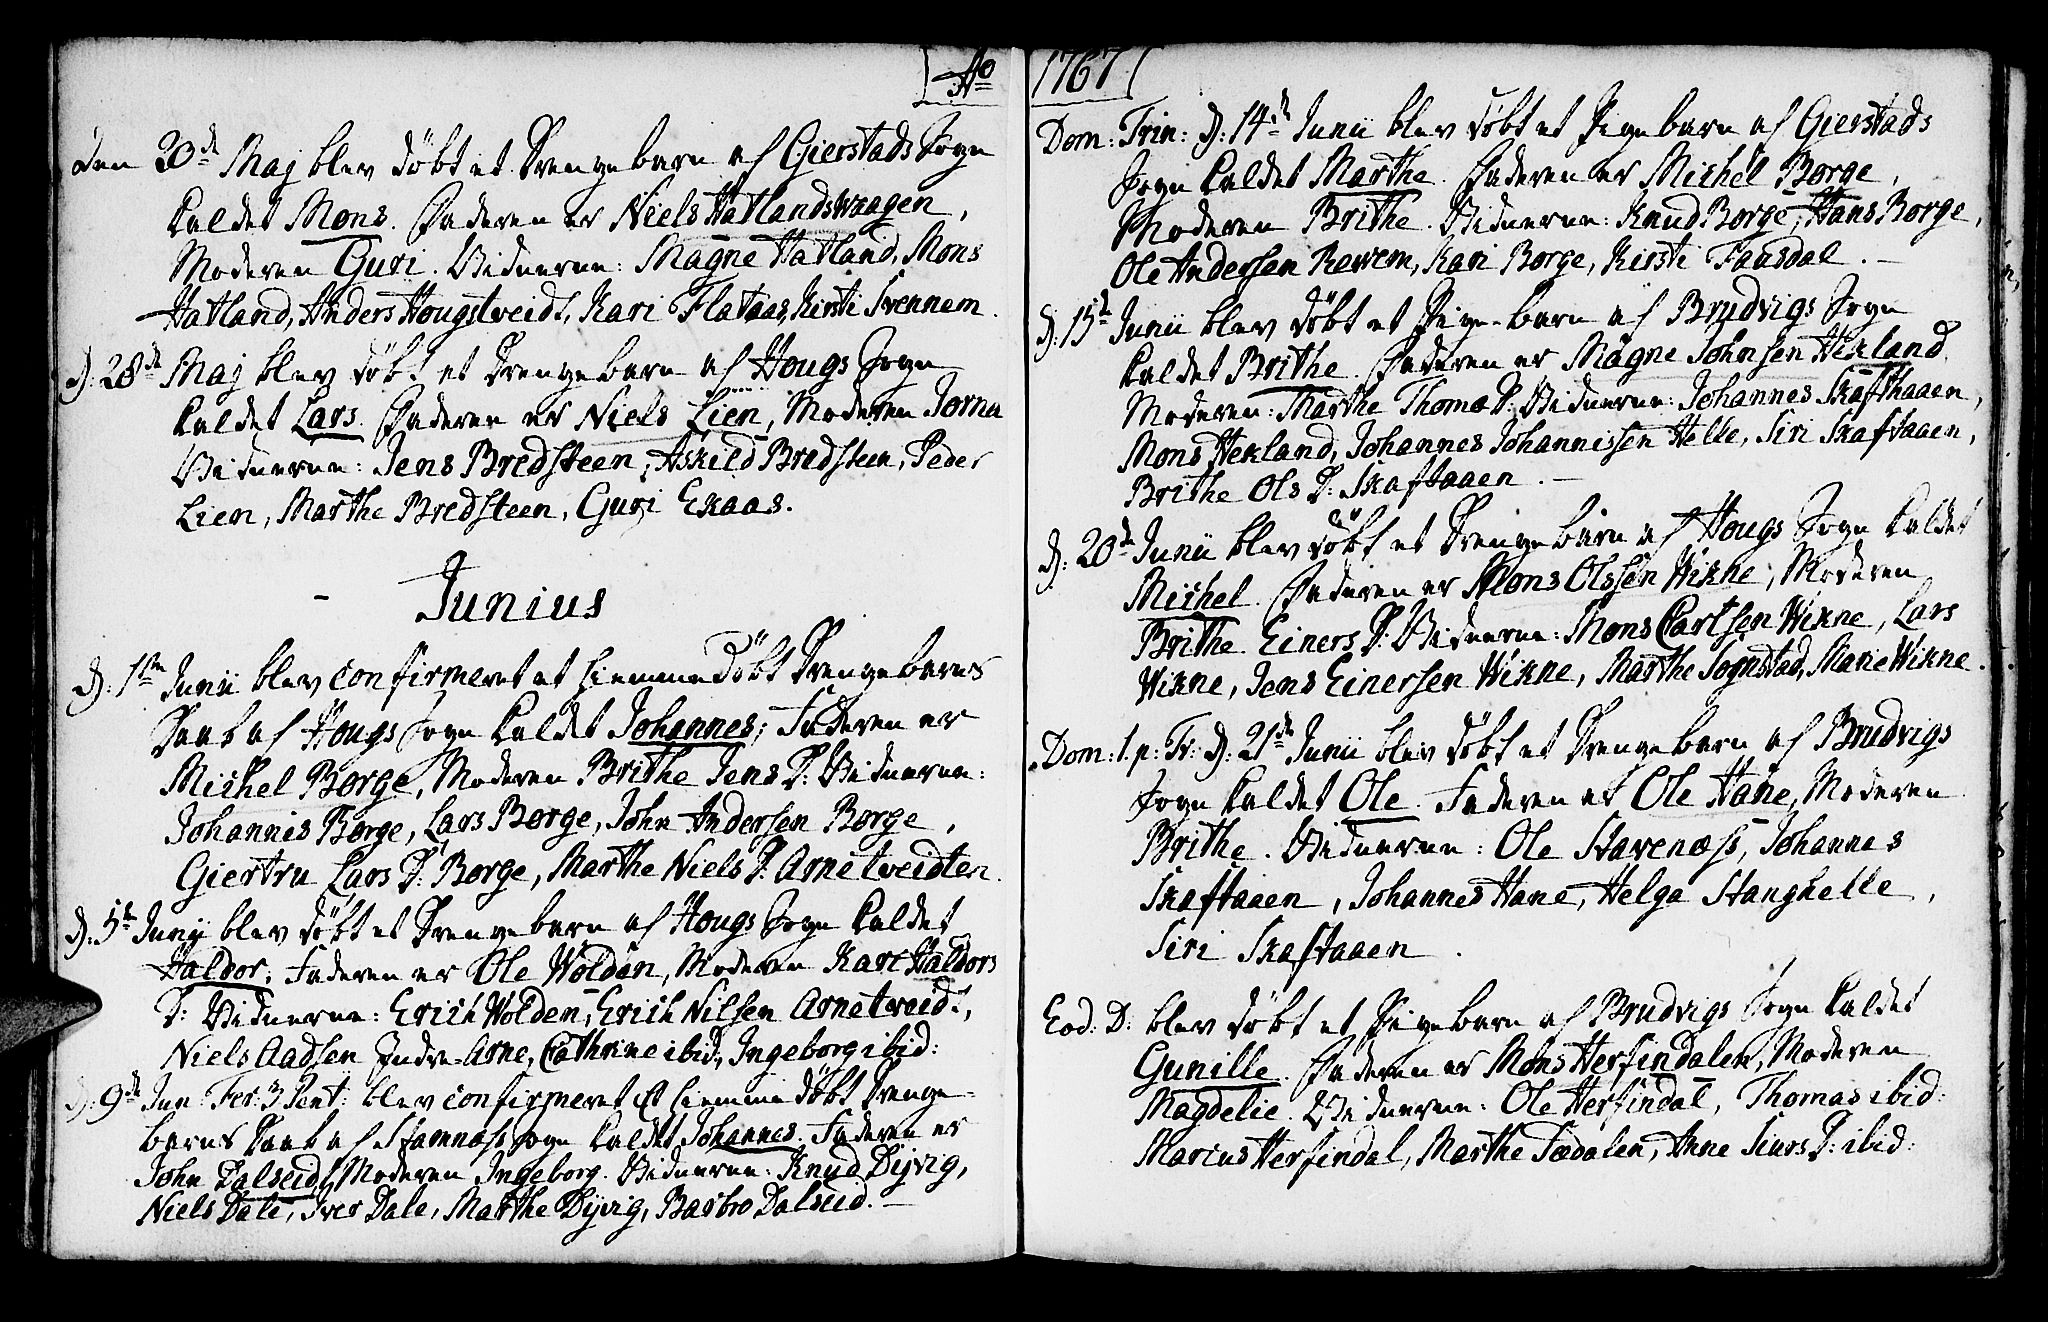 Ao
Den 20de Maj blev döbt et Drengebarn af Gierstads Sogn
kaldet Mons. Faderen er Niels Hatlandswaagen,
Moderen Guri. Vidnerne: Magne Hatland, Mons
Hatland, Anders Hougstveidt, Kari Flataas, Kirsti Trennem.
d: 28de Maj blev döbt et Drengebarn af Hougs Sogn
kaldet Lars. Faderen er Niels Lien, Moderen Jorna
Vidnerne: Jens Bredsteen, Askild Bredsteen, Peder
Lien, Marthe Bredsteen, Guri Ekaas.
Junius
d: 1ste Junii blev confirmeret et hiemmedöbt Drengebarns
Daab af Hougs Sogn kaldet Johannes; Faderen er
Michel Borge, Moderen Brithe Jens D: Vidnerne:
Johannis Borge, Lars Borge, John Andersen Borge,
Giertru Lars D: Borge, Marthe Niels D: Arnetveidten.
d: 5te Junij blev döbt et Drengebarn af Hougs Sogn kaldet
Haldor; Faderen er Ole Wolden, Moderen Kari Haldors
D: Vidnerne: Erich Wolden, Erich Nilsen Arnetveidt,
Niels Aadsen Indre-Arne, Cathrine ibid, Ingeborg ibid:
d: 9de Jun: Fer: 3 Pent: blev confirmeret et hiemmedöbt Drenge-
barns Daab af Stamnæss Sogn kaldet Johannes. Faderen er
John Dalseid, Moderen Ingeborg. Vidnerne: Knud Dijvig,
Niels Dale, Iver Dale, Marthe Dijvig, Barbro Dalseid.
1767
Dom: Trin: d: 14de Junii blev döbt et Pigebarn af Gierstads
Sogn kaldet Marthe. Faderen er Michel Borge,
Moderen Brithe. Vidnerne: Knud Borge, Hans Borge,
Ole Andersen Revem, Kari Borge, Kirsti Fausdal.
d: 15de Junii blev döbt et Pigebarn af Brudvigs Sogn
kaldet Brithe. Faderen er Magne Johnsen Hekland
Moderen: Marthe Thomæ D: Vidnerne: Johannes Skafthaaen,
Mons Hekland, Johannes Johannissen Helle, Siri Skaftaaen,
Brithe Ols D: Skaftaaen.
d: 20de Junii blev döbt et Drengebarn af Hougs Sogn kaldet
Michel. Faderen er Mons Olssen Wikne, Moderen
Brithe Einers D: Vidnerne: Mons Carlsen Wikne, Lars
Wikne, Jens Einersen Wikne, Marthe Sognstad, Marie Wikne.
Dom: 1. p: Tr: d: 21de Junii blev döbt et Drengebarn af Brudvigs
Sogn kaldet Ole. Faderen er Ole Hane, Moderen
Brithe. Vidnerne: Ole Stavenæss, Johannes
Skaftaaen, Johannes Hane, Helga Stanghelle,
Siri Skaftaaen.
Eod: D: blev döbt et Pigebarn af Brudvigs Sogn kaldet
Gunille. Faderen er Mons Herfindalen, Moderen
Magdelie. Vidnerne: Ole Herfindal, Thomas ibid:
Marcus Herfindal, Marthe Sædalen, Anne Siurs D: ibid: